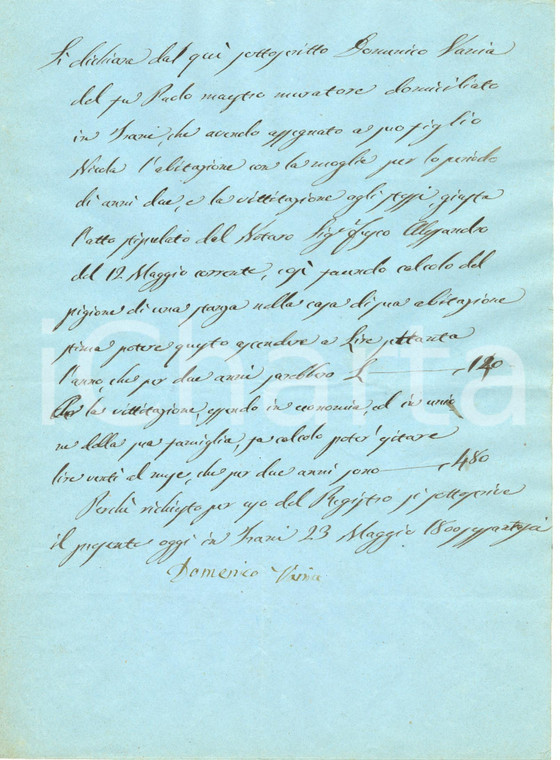 Si dichiara dal quì sottoscritto Domenico Vania
del fu Paolo maestro muratore domiciliato
in Trani, che avendo assegnato a suo figlio
Nicola l'abitazione con la moglie per lo periodo
di anni due, e la vittitazione agli stessi, giusta
l'atto stipulato dal Notaro Sig.r Fusco Alessandro
del 12 Maggio corrente, così facendo calcolo del
pigione di una stanza nella casa di sua abitazione
stima potere questo ascendere a Lire
l'anno, che per due anni sarebbero L
Per la vittitazione, essendo in economia, ed in unio
ne della sua famiglia, fa calcolo poter gitare
lire venti al mese, che per due anni sono 480
Perchè richiesto per uso del Registro si sottoscrive
il presente oggi in Trani 23 Maggio 1800sessantasei
Domenico Vania
iCharta